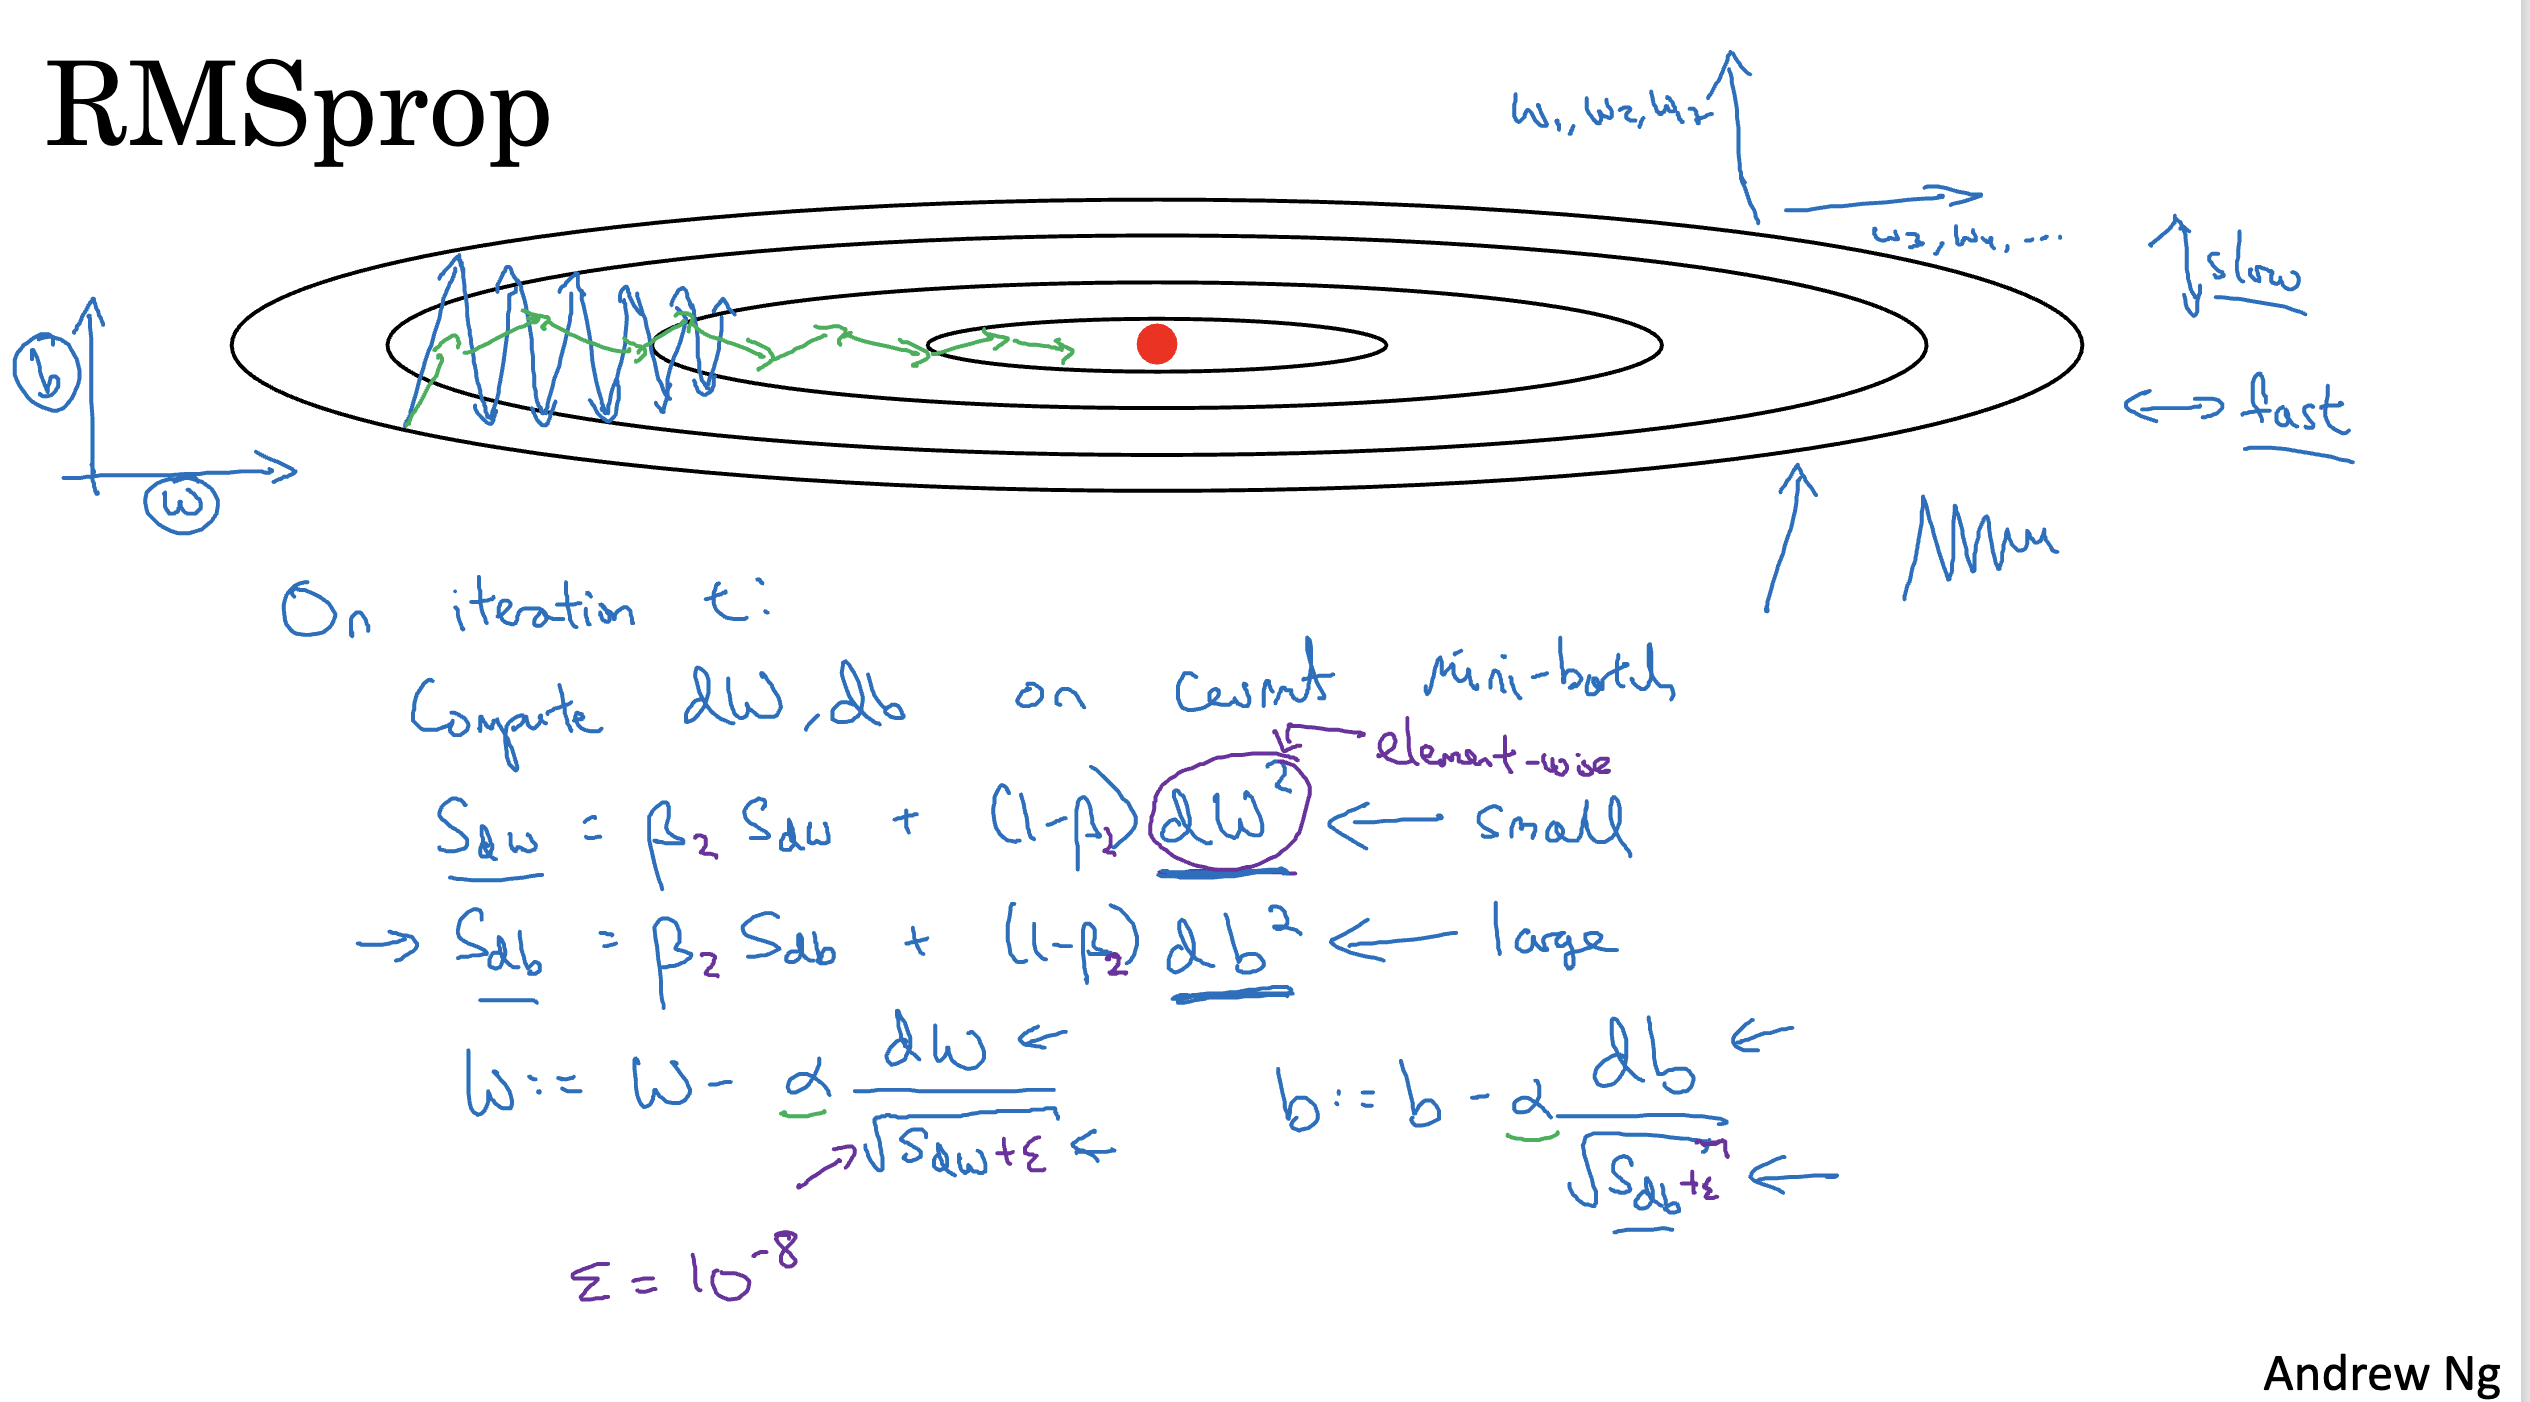 RMSprop
w₁, w₂, w₁₇
w₃, w₄, ...
slow
b
fast
w
On iteration t:
Compute dW, db on current mini-batch
element-wise
S_dw = β₂ S_dw + (1-β₂) dW² ← small
→ S_db = β₂ S_db + (1-β₂) db² ← large
W := W - α dW / √(S_dw + ε) ←
b := b - α db / √(S_db + ε) ←
ε = 10⁻⁸
Andrew Ng